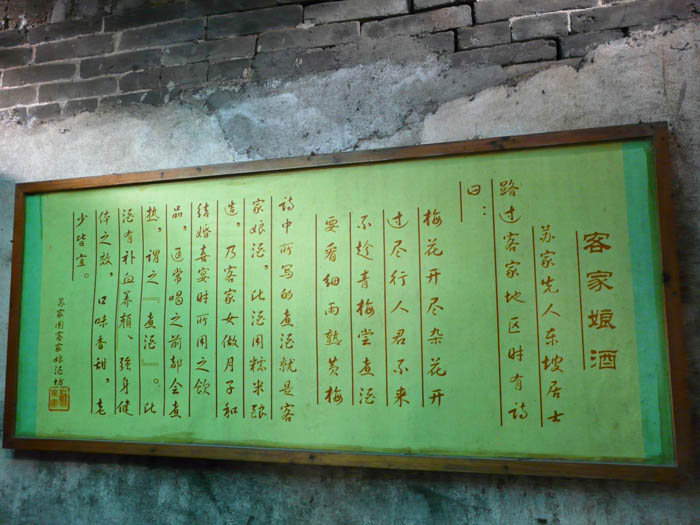 客家娘酒
苏家先人东坡居士
路过客家地区时有诗
曰：
梅花开尽杂花开
过尽行人君不来
不趁青梅尝煮酒
要看细雨熟黄梅
诗中所写的煮酒就是客
家娘酒，此酒用糯米酿
造，乃客家女做月子和
结婚喜宴时所用之饮
品，通常喝之前都会煮
热，谓之『煮酒』。此
酒有补血养颜、强身健
体之效，口味香甜，老
少皆宜。
苏家围客家娘酒坊